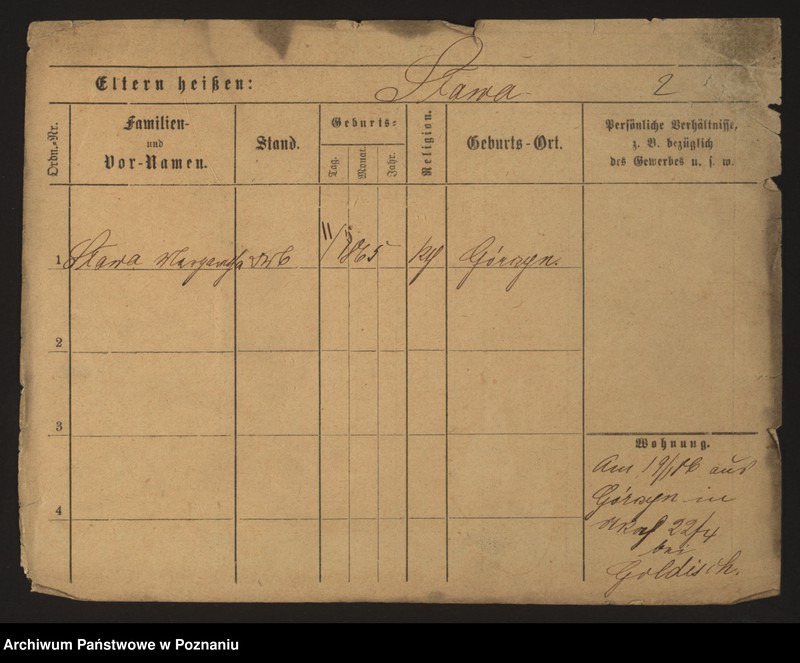 Eltern heißen: Sława 2
Ordn.-Nr.
Familien-
und
Vor-Namen.
Stand.
Geburts-
Tag.
Monat.
Jahr.
Religion.
Geburts-Ort.
Persönliche Verhältnisse,
z. B. bezüglich
des Gewerbes u. s. w.
1 Sława Margaretha 11/ 1865 Górczyn.
2
3
4
Wohnung.
Am aus
Górczyn in
22/4
bei
Goldisch.
Archiwum Państwowe w Poznaniu